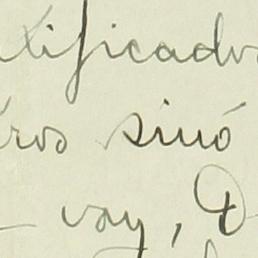 tificado
ros sinó
vay,